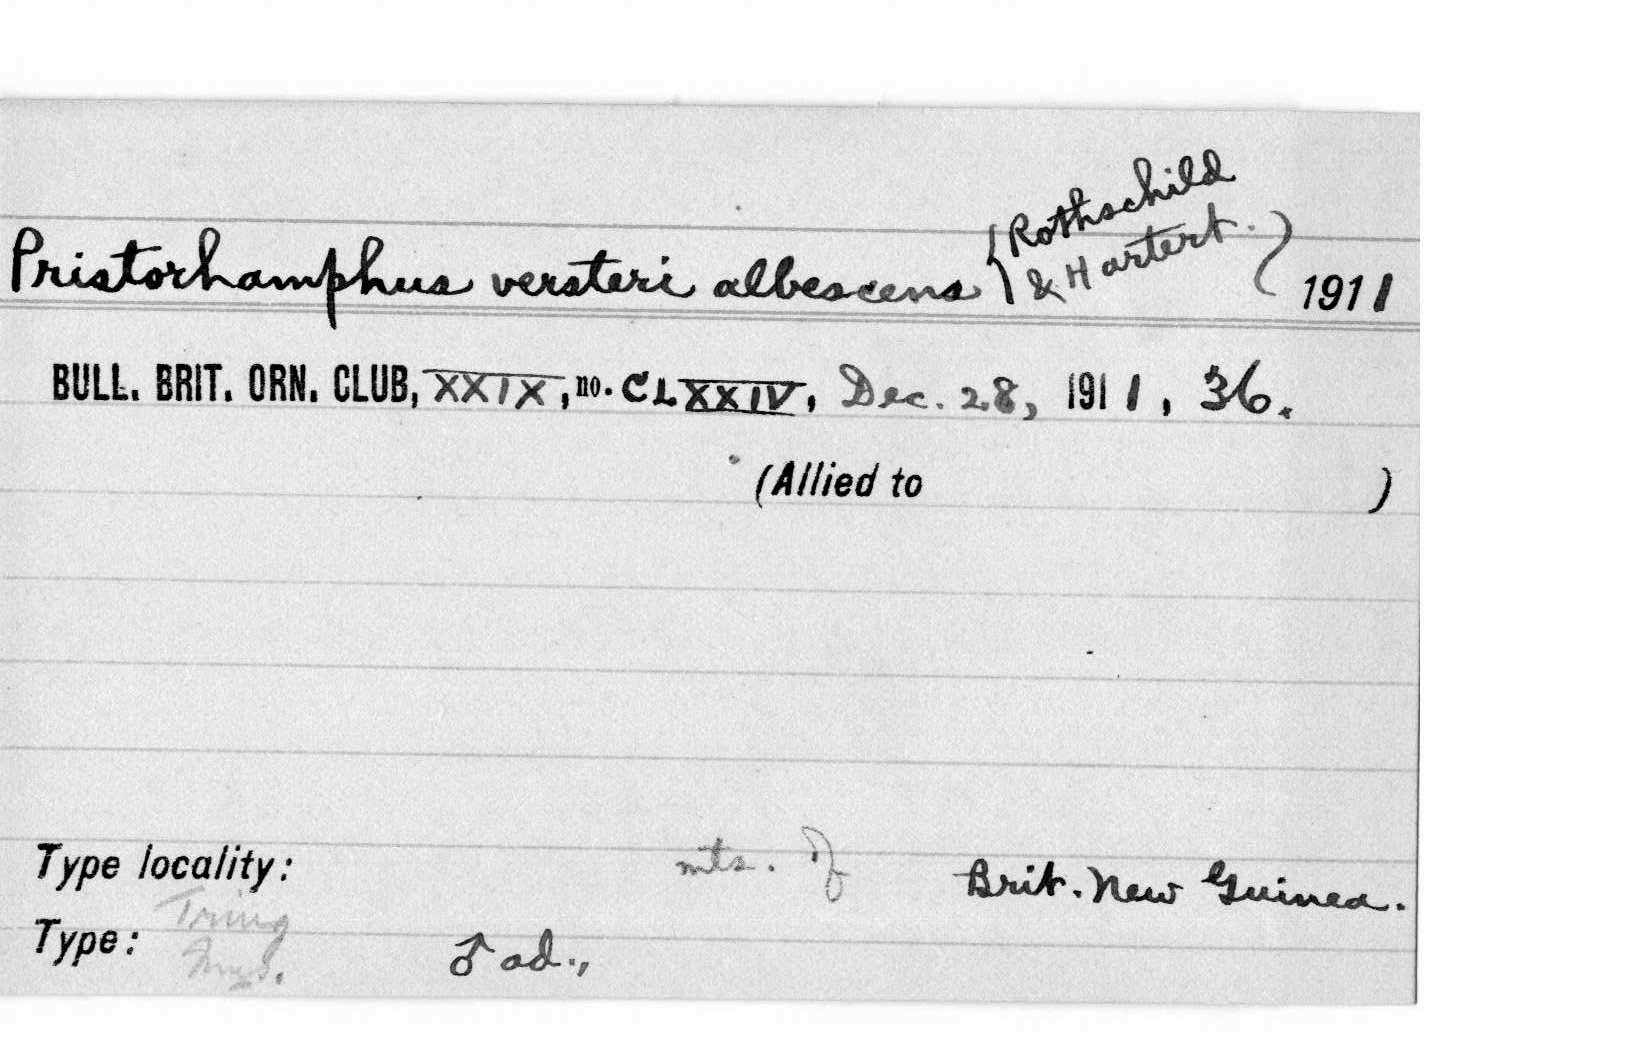 Pristorhamphus versteri albescens { Rothschild
& Hartert. } 1911
BULL. BRIT. ORN. CLUB, XXIX, no. CLXXIV, Dec. 28, 1911, 36.
(Allied to )
Type locality: mts. of Brit. New Guinea.
Type: Tring
Mus. ♂ ad.,